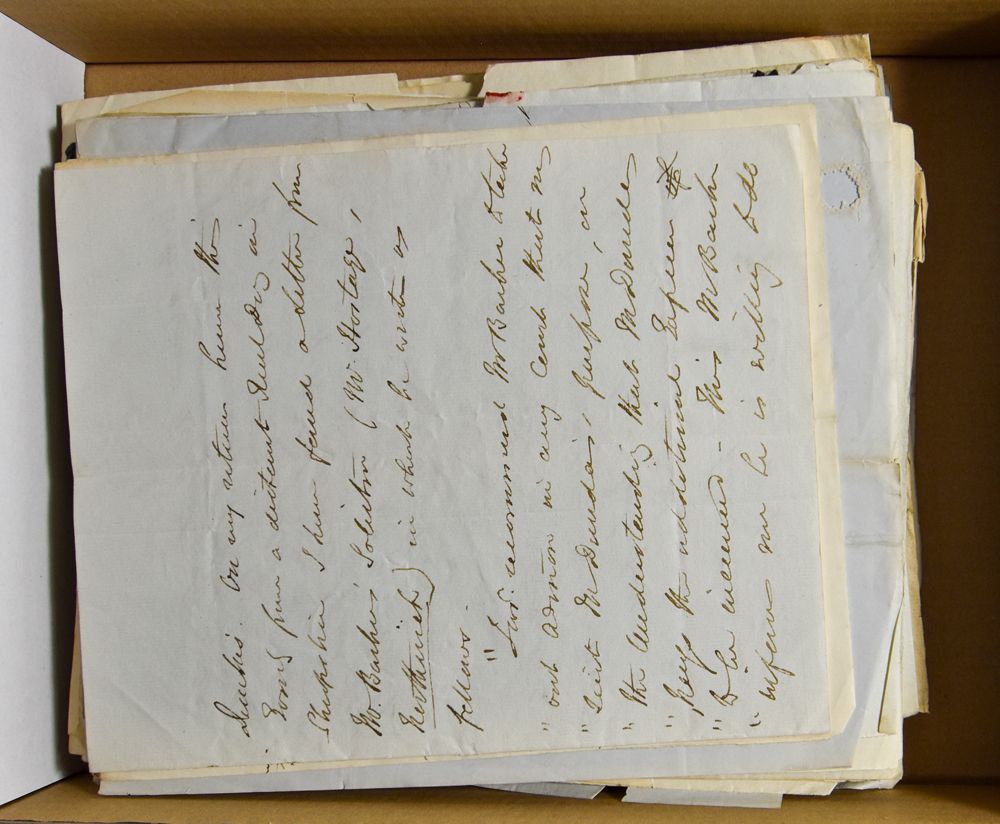 thanks. On my return here this
Evening from a distant Audit in
Shropshire I have found a letter from
Mr. Barker's Solicitor (Mr. Hostage,
Northwich) in which he writes as
follows.
"I have recommended Mr Barker to take
"out Admon in any Court that may
"suit Mr Dundas' purpose, on
"the understanding that Mr Dundas
"pays the additional Expence
"to be incurred – This Mr Barker
"informs me he is willing to do